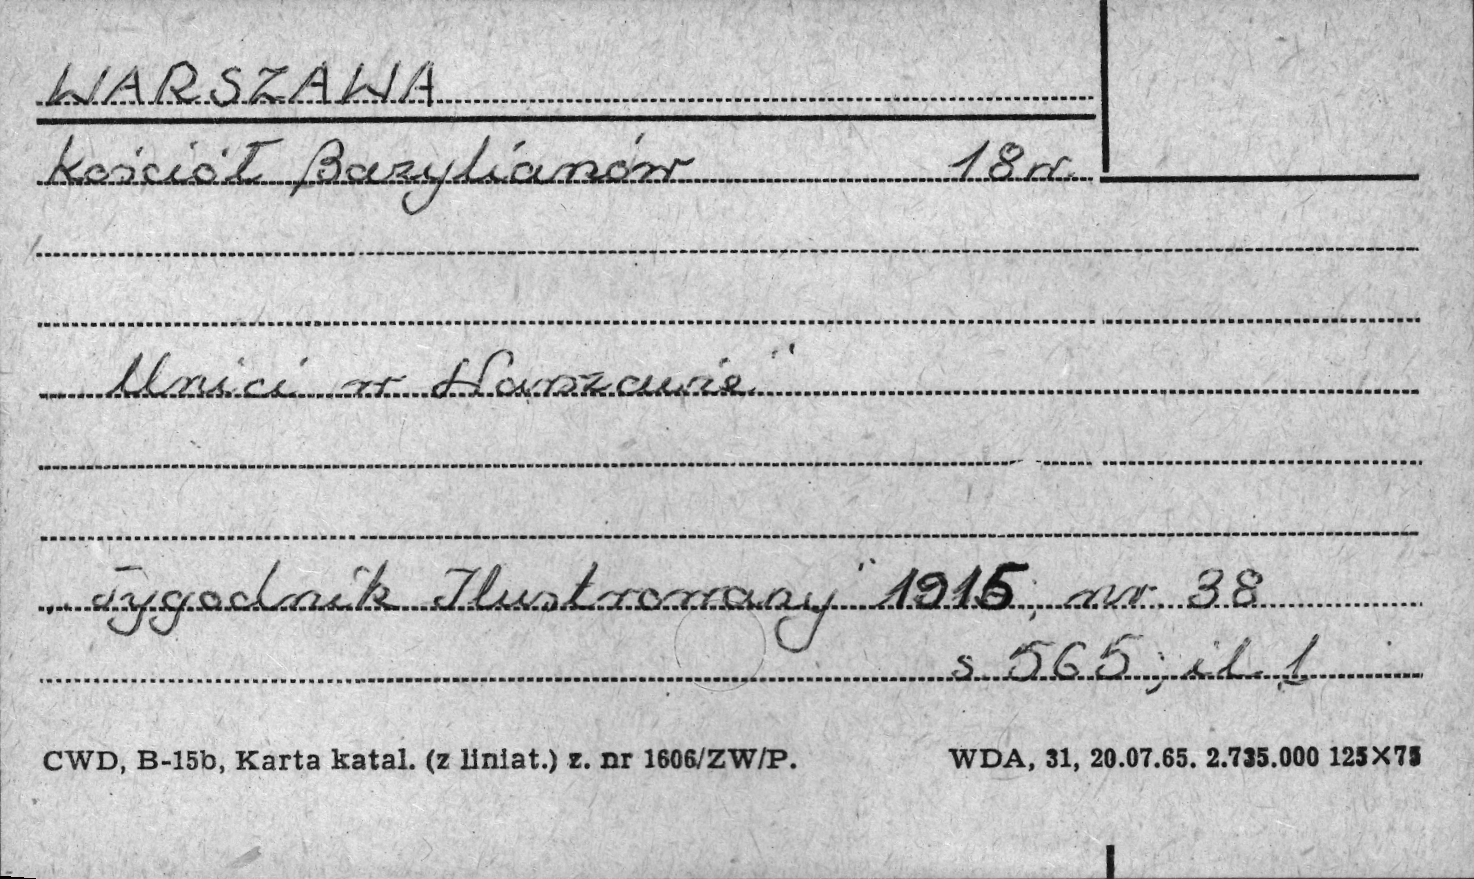 WARSZAWA
Kościół Bazylianów 18 w.
„Unici w Warszawie"
„Tygodnik Ilustrowany" 1915, nr 38
s. 565; il. 1
CWD, B-15b, Karta katal. (z liniat.) z. nr 1606/ZW/P. WDA, 31, 20.07.65. 2.735.000 125×75